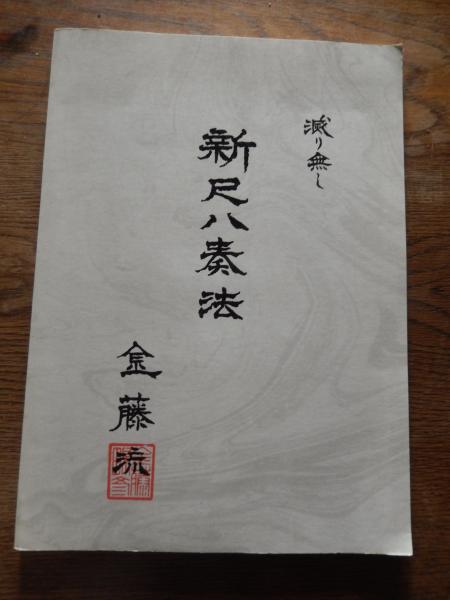 減り無し
新尺八奏法
金藤流